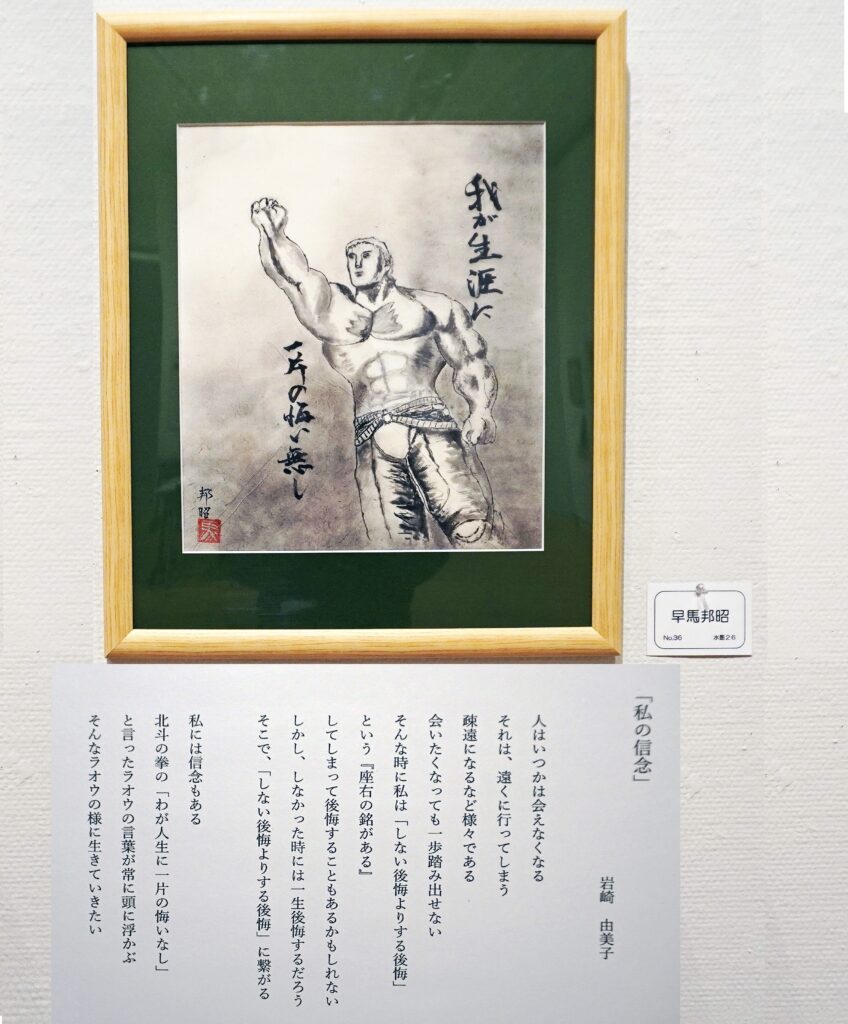 我が生涯に
一片の悔い無し
邦昭
早馬邦昭
No.36 水墨26
「私の信念」
岩崎 由美子
人はいつかは会えなくなる
それは、遠くに行ってしまう
疎遠になるなど様々である
会いたくなっても一歩踏み出せない
そんな時に私は「しない後悔よりする後悔」
という『座右の銘がある』
してしまって後悔することもあるかもしれない
しかし、しなかった時には一生後悔するだろう
そこで、「しない後悔よりする後悔」に繋がる
私には信念もある
北斗の拳の「わが人生に一片の悔いなし」
と言ったラオウの言葉が常に頭に浮かぶ
そんなラオウの様に生きていきたい